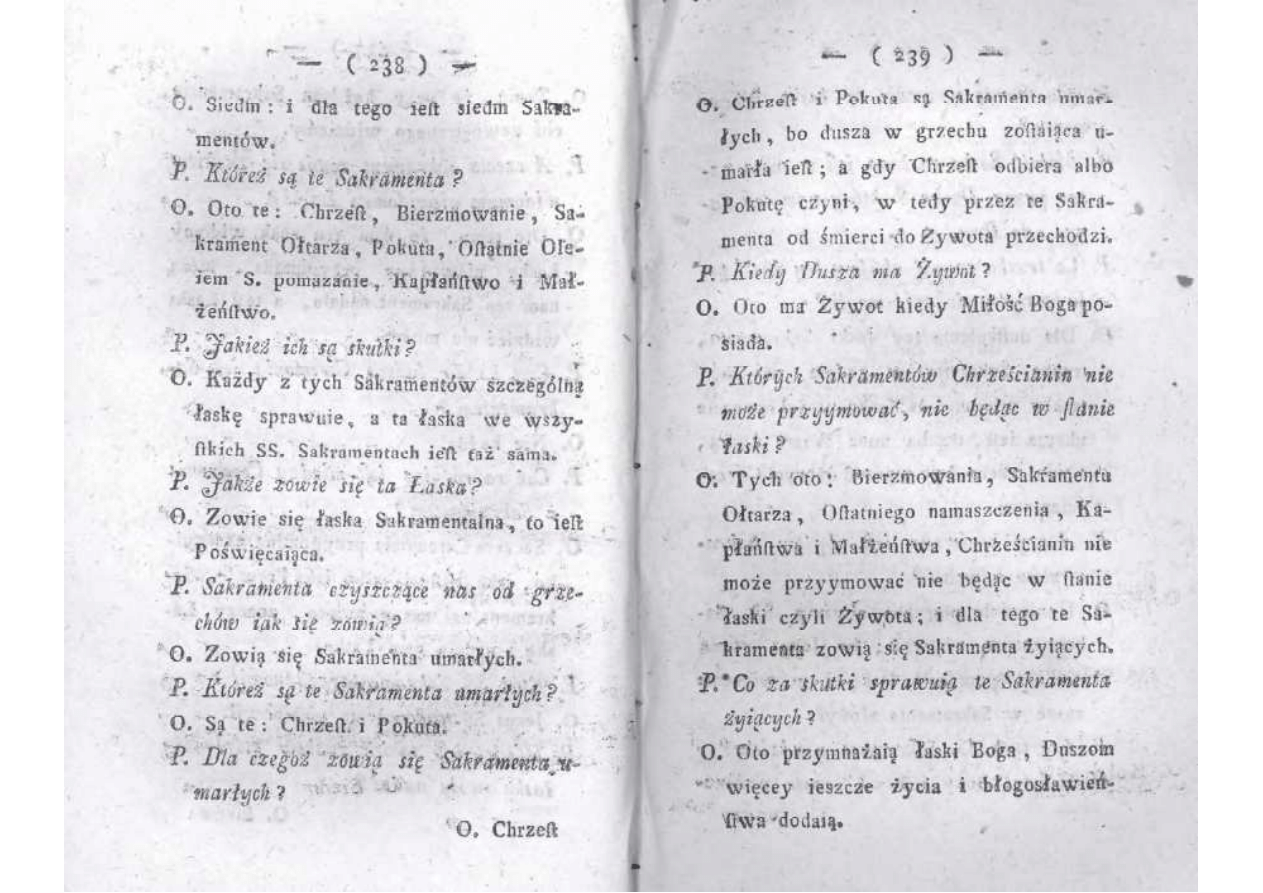 — ( 238 ) —
O. Siedm : i dla tego ieſt siedm Sakra-
mentów.
P. Któreż są te Sakramenta ?
O. Oto te : Chrzeſt, Bierzmowanie, Sa-
krament Ołtarza, Pokuta, Oſtatnie Ole-
iem S. pomazanie, Kapłańſtwo i Mał-
żeńſtwo.
P. Jakież ich są skutki ?
O. Każdy z tych Sakramentów szczególną
łaskę sprawuie, a ta łaska we wszy-
ſtkich SS. Sakramentach ieſt taż sama.
P. Jakże zowie się ta Łaska ?
O. Zowie się łaska Sakramentalna, to ieſt
Poświęcaiąca.
P. Sakramenta czyszczące nas od grze-
chów iak się zowią ?
O. Zowią się Sakramenta umarłych.
P. Któreż są te Sakramenta umarłych ?
O. Są te : Chrzeſt i Pokuta.
P. Dla czegoż zowią się Sakramenta u-
marłych ?
O. Chrzeſt
— ( 239 ) —
O. Chrzeſt i Pokuta są Sakramenta umar-
łych, bo dusza w grzechu zoſtaiąca u-
marła ieſt ; a gdy Chrzeſt odbiera albo
Pokutę czyni, w tedy przez te Sakra-
menta od śmierci do Żywota przechodzi.
P. Kiedy Dusza ma Żywot ?
O. Oto ma Żywot kiedy Miłość Boga po-
siada.
P. Których Sakramentów Chrześcianin nie
może przyymować, nie będąc w ſtanie
łaski ?
O. Tych oto : Bierzmowania, Sakramentu
Ołtarza, Oſtatniego namaszczenia, Ka-
płańſtwa i Małżeńſtwa, Chrześcianin nie
może przyymować nie będąc w ſtanie
łaski czyli Żywota ; i dla tego te Sa-
kramenta zowią się Sakramenta żyiących.
P. Co za skutki sprawuią te Sakramenta
żyiących ?
O. Oto przymnażaią łaski Boga, Duszom
więcey ieszcze życia i błogosławień-
ſtwa dodaią.